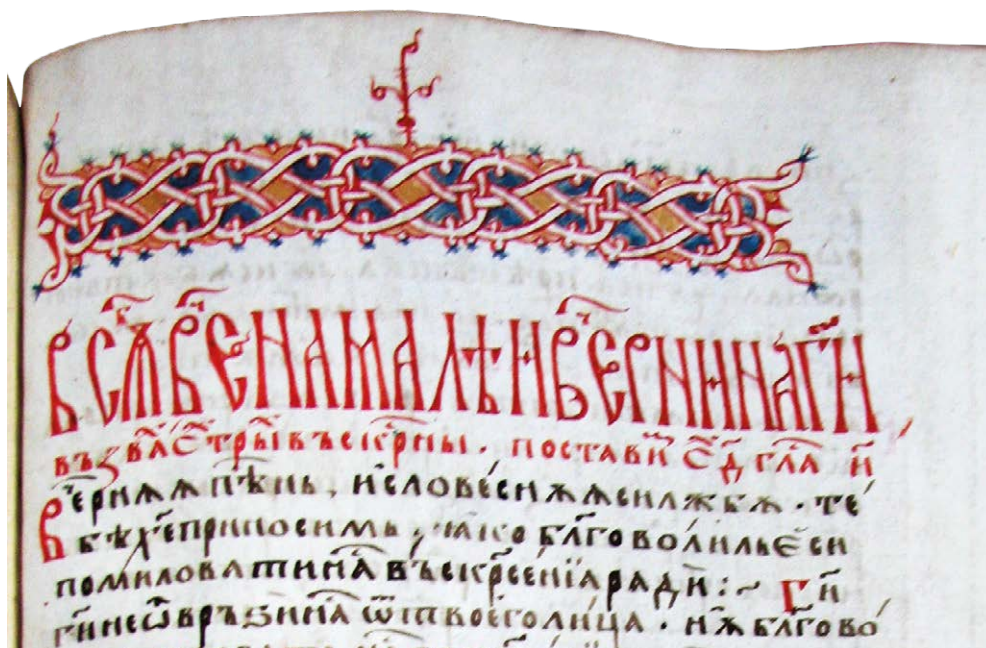 В сѫⷠ҇ веⷱ҇ на малѣи веⷱ҇рни на г҃и
възваⷯ с̑трⷯы въскрⷭ҇ны · поставиⷨ с̑ д҃ глⷭ҇а и҃
Веⷱ҇рнѧѧ пѣⷭ҇нь, и словеснѫѧ слѫжбѫ · те
бѣ х҃е приносимь, ꙗко бл҃говолиль еси
помиловати наⷭ҇ въскрⷭ҇сенїа ради :~ Г҃и
г҃и не ѿвръзи наⷭ҇ ѿ твоего лица · нѫ бл҃гово